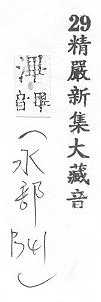 29精嚴新集大藏音
（水部341）